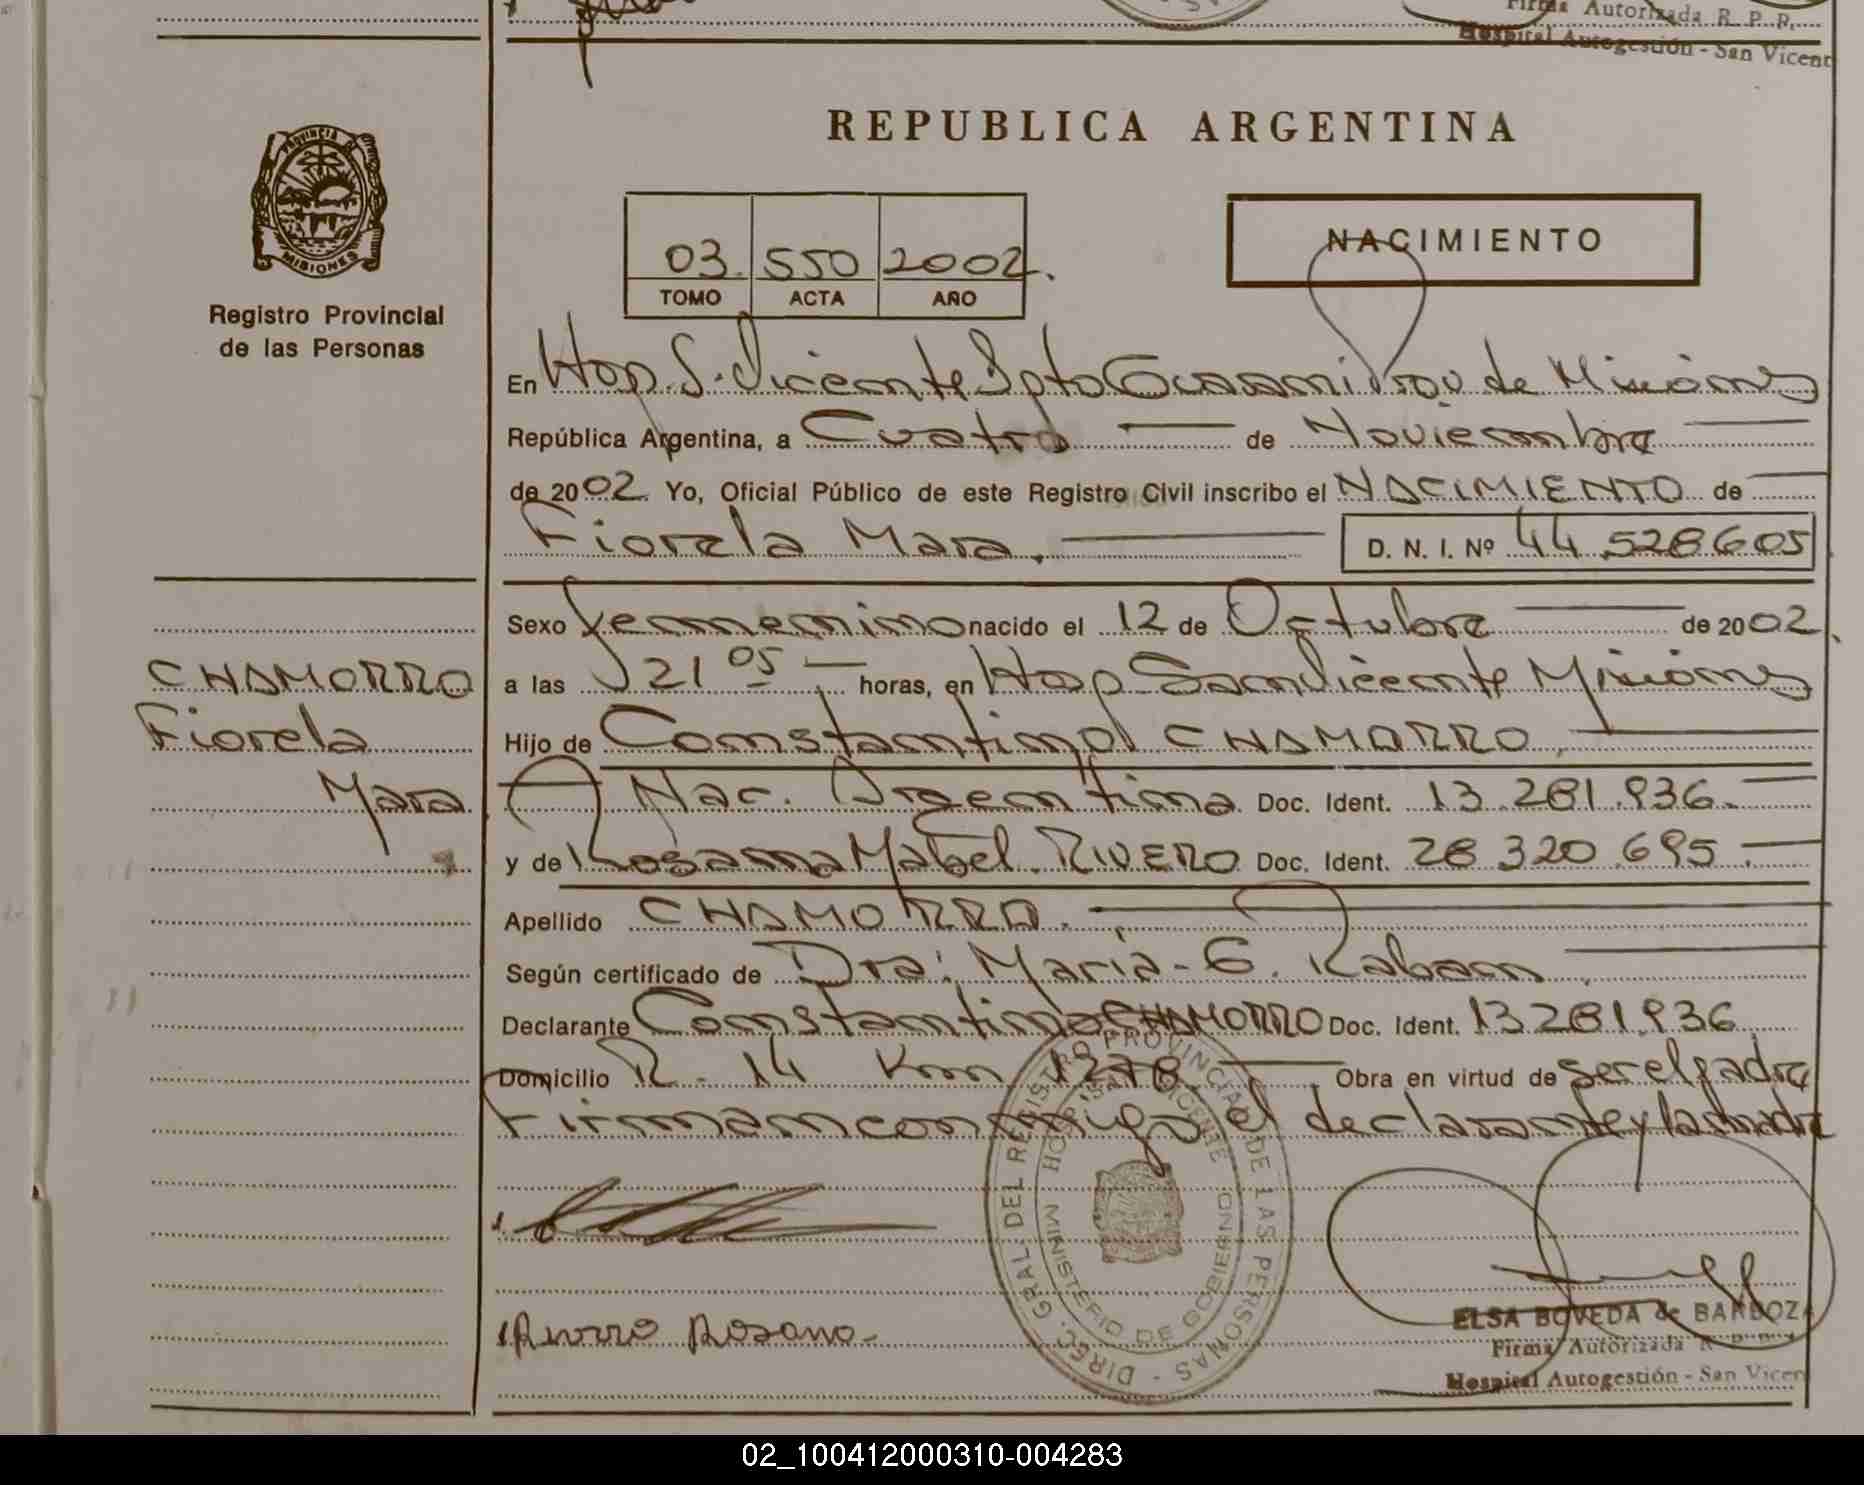 Firma Autorizada R. P. P.
Hospital Autogestión - San Vicent
PROVINCIA DE
MISIONES
Registro Provincial
de las Personas
REPUBLICA ARGENTINA
NACIMIENTO
03. 550 2002.
TOMO ACTA AÑO
En Hop. S. Vicente Dpto Guarani Prov de Misiones
República Argentina, a Cuatro de Noviembre
de 2002. Yo, Oficial Público de este Registro Civil inscribo el NACIMIENTO de
Fiorela Mara. D. N. I. Nº 44 528605
CHAMORRO
Fiorela
Mara
Sexo Femenino nacido el 12 de Octubre de 2002.
a las 21 05 horas, en Hop San Vicente Misiones
Hijo de Constantino CHAMORRO.
Nac. Argentina. Doc. Ident. 13.281.936.
y de Rosana Mabel RIVERO Doc. Ident. 28 320.695.
Apellido CHAMORRO.
Según certificado de Dra: Maria - G. Raban
Declarante Constantino CHAMORRO Doc. Ident. 13281.936
Domicilio R. 14 Km 1278. Obra en virtud de ser el padre
Firman conmigo el declarante y la madre
DIREC. GRAL DEL REGISTRO PROVINCIAL DE LAS PERSONAS -
HOSP. SAN VICENTE
MINISTERIO DE GOBIERNO
Rivero Rosana
ELSA BOVEDA de BARBOZA
Firma Autorizada R. P. P.
Hospital Autogestión - San Vicen
02_100412000310-004283